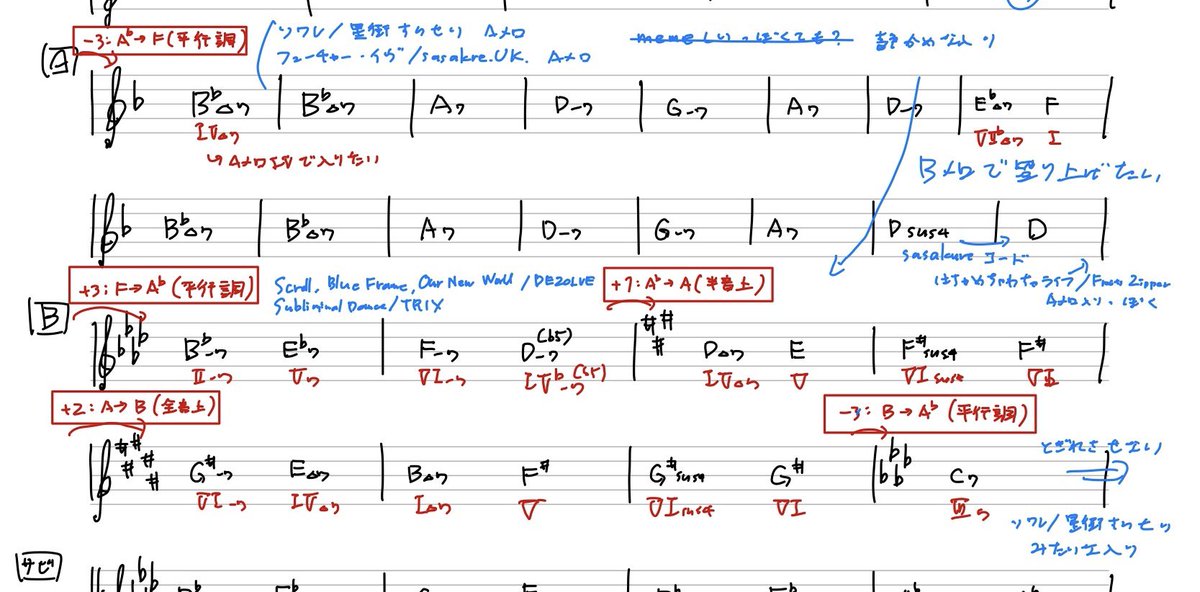 -3: A♭→F(平行調)
ソワレ/星街すいせい Aメロ
フューチャー・イヴ/sasakure.UK. Aメロ
memeしいっぽくても? 静かめな入り
A
B♭△7 B♭△7 A7 D-7 G-7 A7 D-7 E♭△7 F
IV△7 VII♭△7 I
↳AメロIVで入りたい
Bメロで盛り上げたい
B♭△7 B♭△7 A7 D-7 G-7 A7 Dsus4 D
sasakureコード
はちゃめちゃわちゃライフ/From Zipper
Aメロ入りっぽく
+3: F→A♭(平行調)
Scroll, Blue Frame, Our New World /DEZOLVE
Subliminal Dance/TRIX
+1: A♭→A(半音上)
B
B♭-7 E♭7 F-7 D-7(♭5) D△7 E F#sus4 F#
II-7 V7 VI-7 IV♭-7(♭5) IV△7 V VIsus4 VI
+2: A→B(全音上)
-3: B→A♭(平行調)
とぎれさせない
G#-7 E△7 B△7 F# G#sus4 G# C7
VI-7 IV△7 I△7 V VIsus4 VI III7
ソワレ/星街すいせい
みたいな入り
サビ